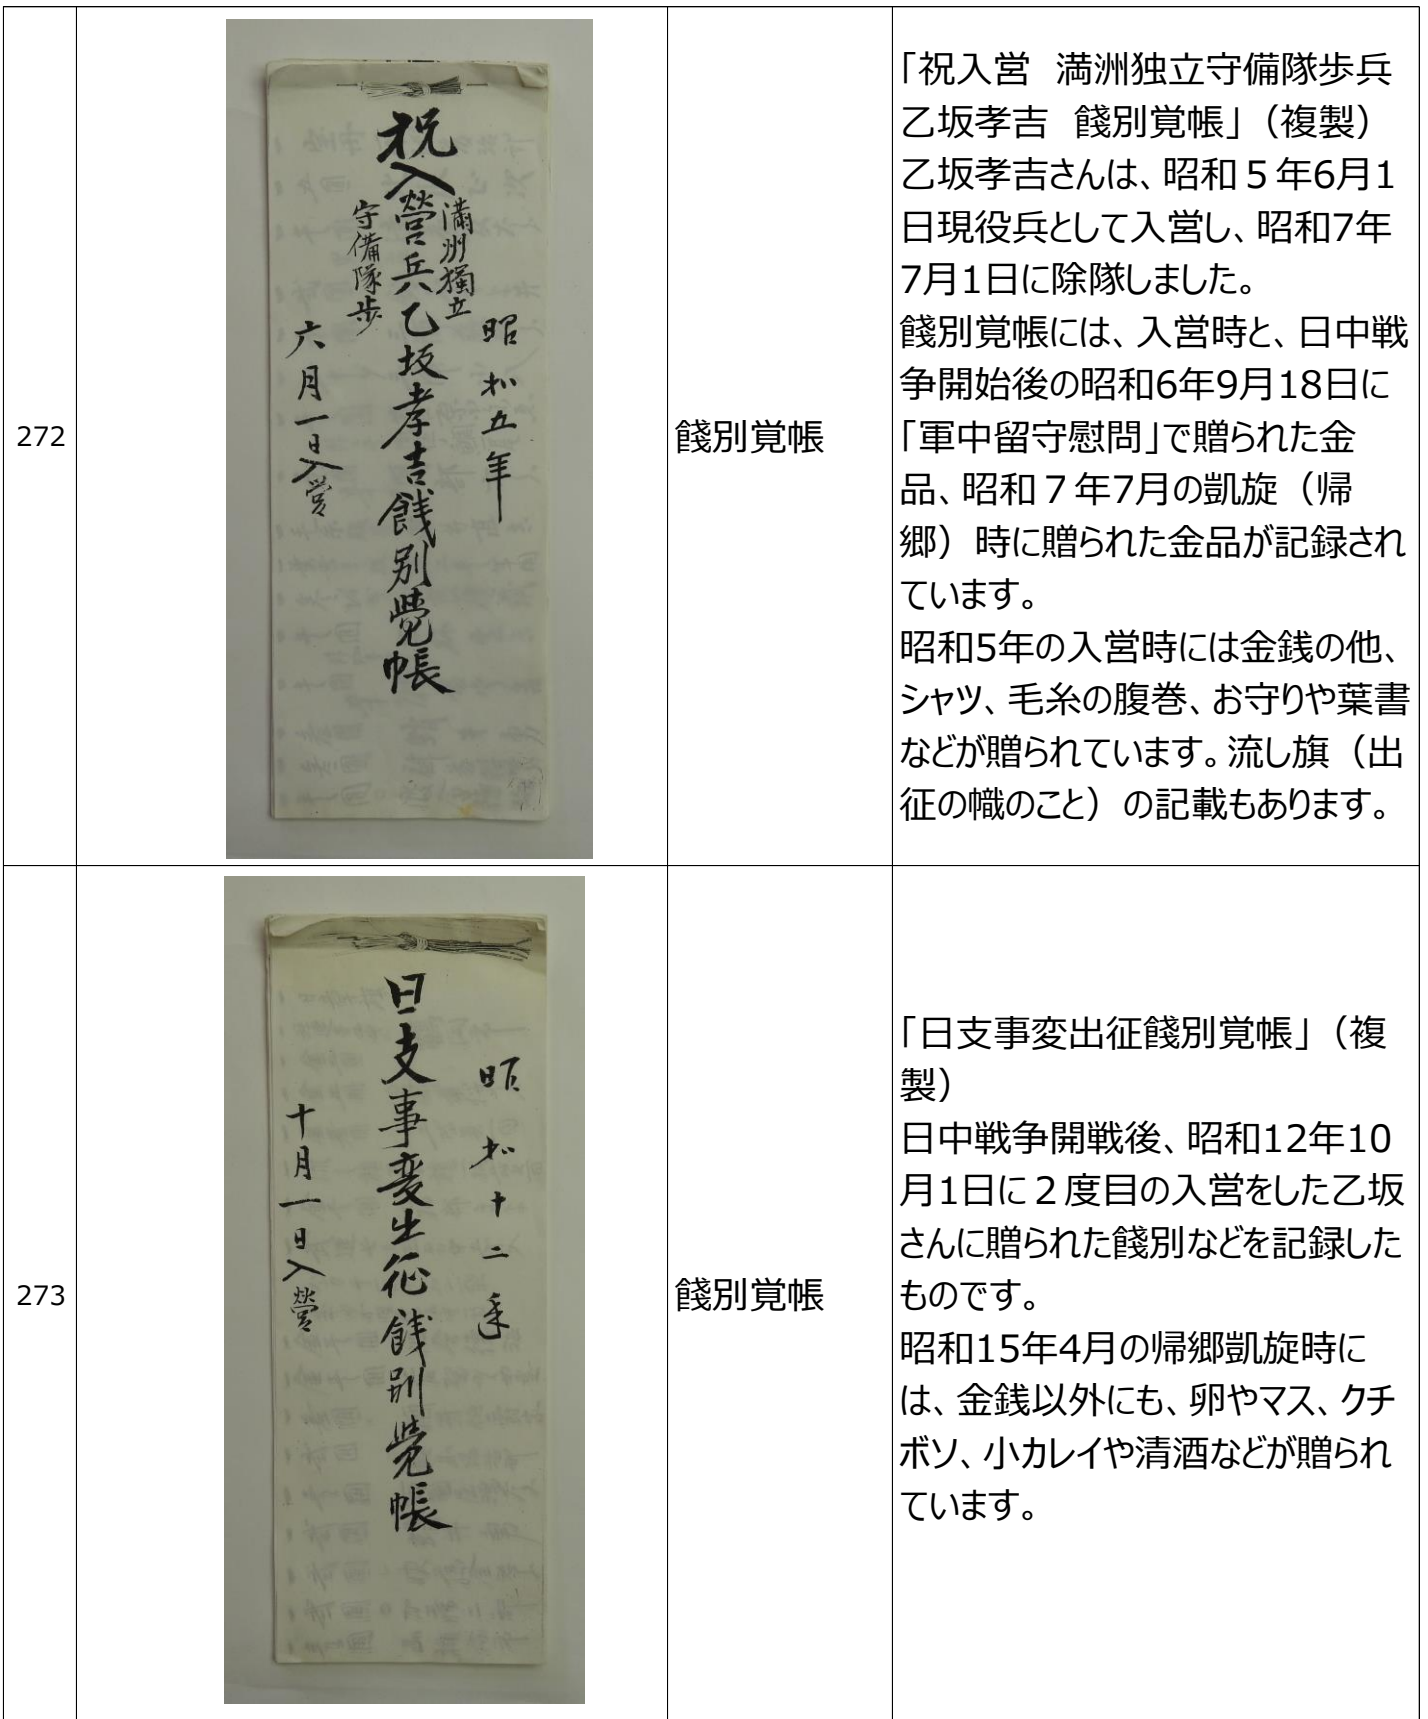 272
祝入營兵乙坂孝吉餞別覺帳
満州獨立
守備隊歩
昭和五年
六月一日入營
餞別覚帳
「祝入営　満洲独立守備隊歩兵
乙坂孝吉　餞別覚帳」（複製）
乙坂孝吉さんは、昭和５年6月1
日現役兵として入営し、昭和7年
7月1日に除隊しました。
餞別覚帳には、入営時と、日中戦
争開始後の昭和6年9月18日に
「軍中留守慰問」で贈られた金
品、昭和７年7月の凱旋（帰
郷）時に贈られた金品が記録され
ています。
昭和5年の入営時には金銭の他、
シャツ、毛糸の腹巻、お守りや葉書
などが贈られています。流し旗（出
征の幟のこと）の記載もあります。
273
昭和十二年
日支事変出征餞別覺帳
十月一日入營
餞別覚帳
「日支事変出征餞別覚帳」（複
製）
日中戦争開戦後、昭和12年10
月1日に２度目の入営をした乙坂
さんに贈られた餞別などを記録した
ものです。
昭和15年4月の帰郷凱旋時に
は、金銭以外にも、卵やマス、クチ
ボソ、小カレイや清酒などが贈られ
ています。